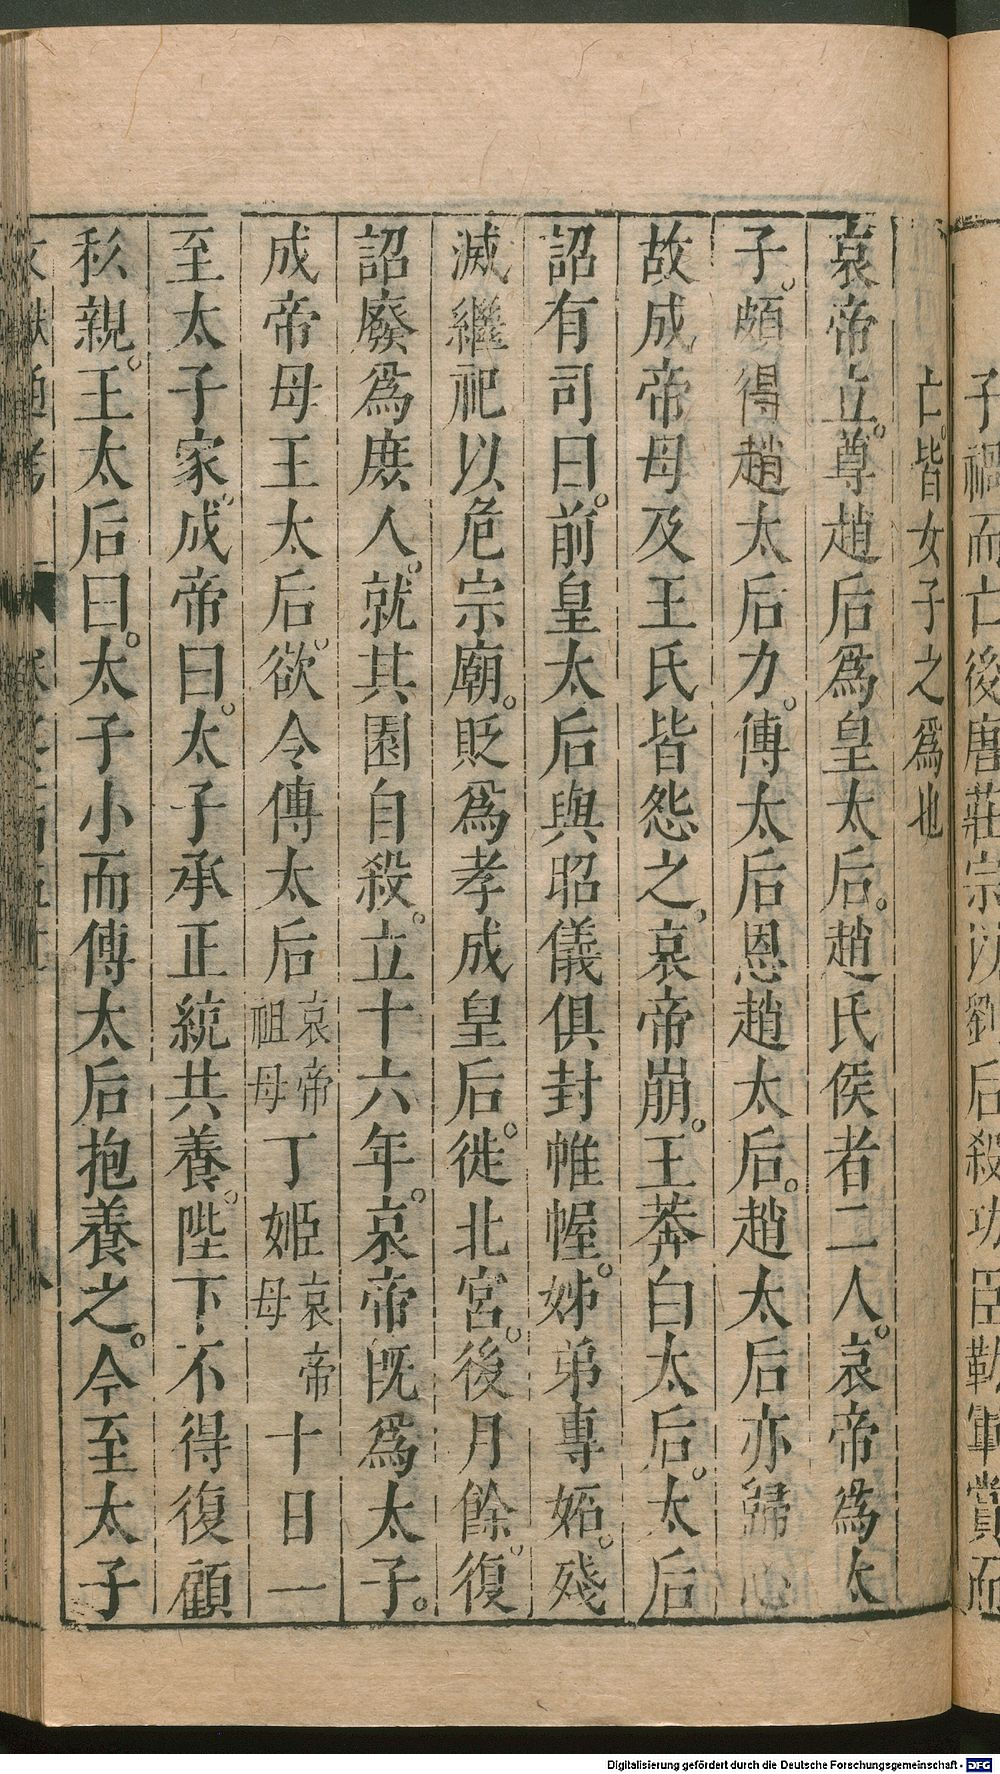 子禍而亡後唐莊宗汰劉后殺功臣靳軍賞而
亡。皆女子之爲也
哀帝立。尊趙后爲皇太后。趙氏侯者二人。哀帝爲太
子。頗得趙太后力。傅太后恩趙太后。趙太后亦歸心
故成帝母及王氏皆怨之。哀帝崩。王莽白太后。太后
詔有司曰。前皇太后與昭儀俱封帷幄。姊弟專妬。殘
滅繼祀以危宗廟。貶爲孝成皇后。徙北宮。後月餘。復
詔廢爲庶人。就其園自殺。立十六年。哀帝旣爲太子。
成帝母王太后。欲令傅太后哀帝祖母丁姬哀帝母十日一
至太子家。成帝曰。太子承正統共養。陛下不得復顧
私親。王太后曰。太子小而傅太后抱養之。今至太子
文獻通考
Digitalisierung gefördert durch die Deutsche Forschungsgemeinschaft - DFG